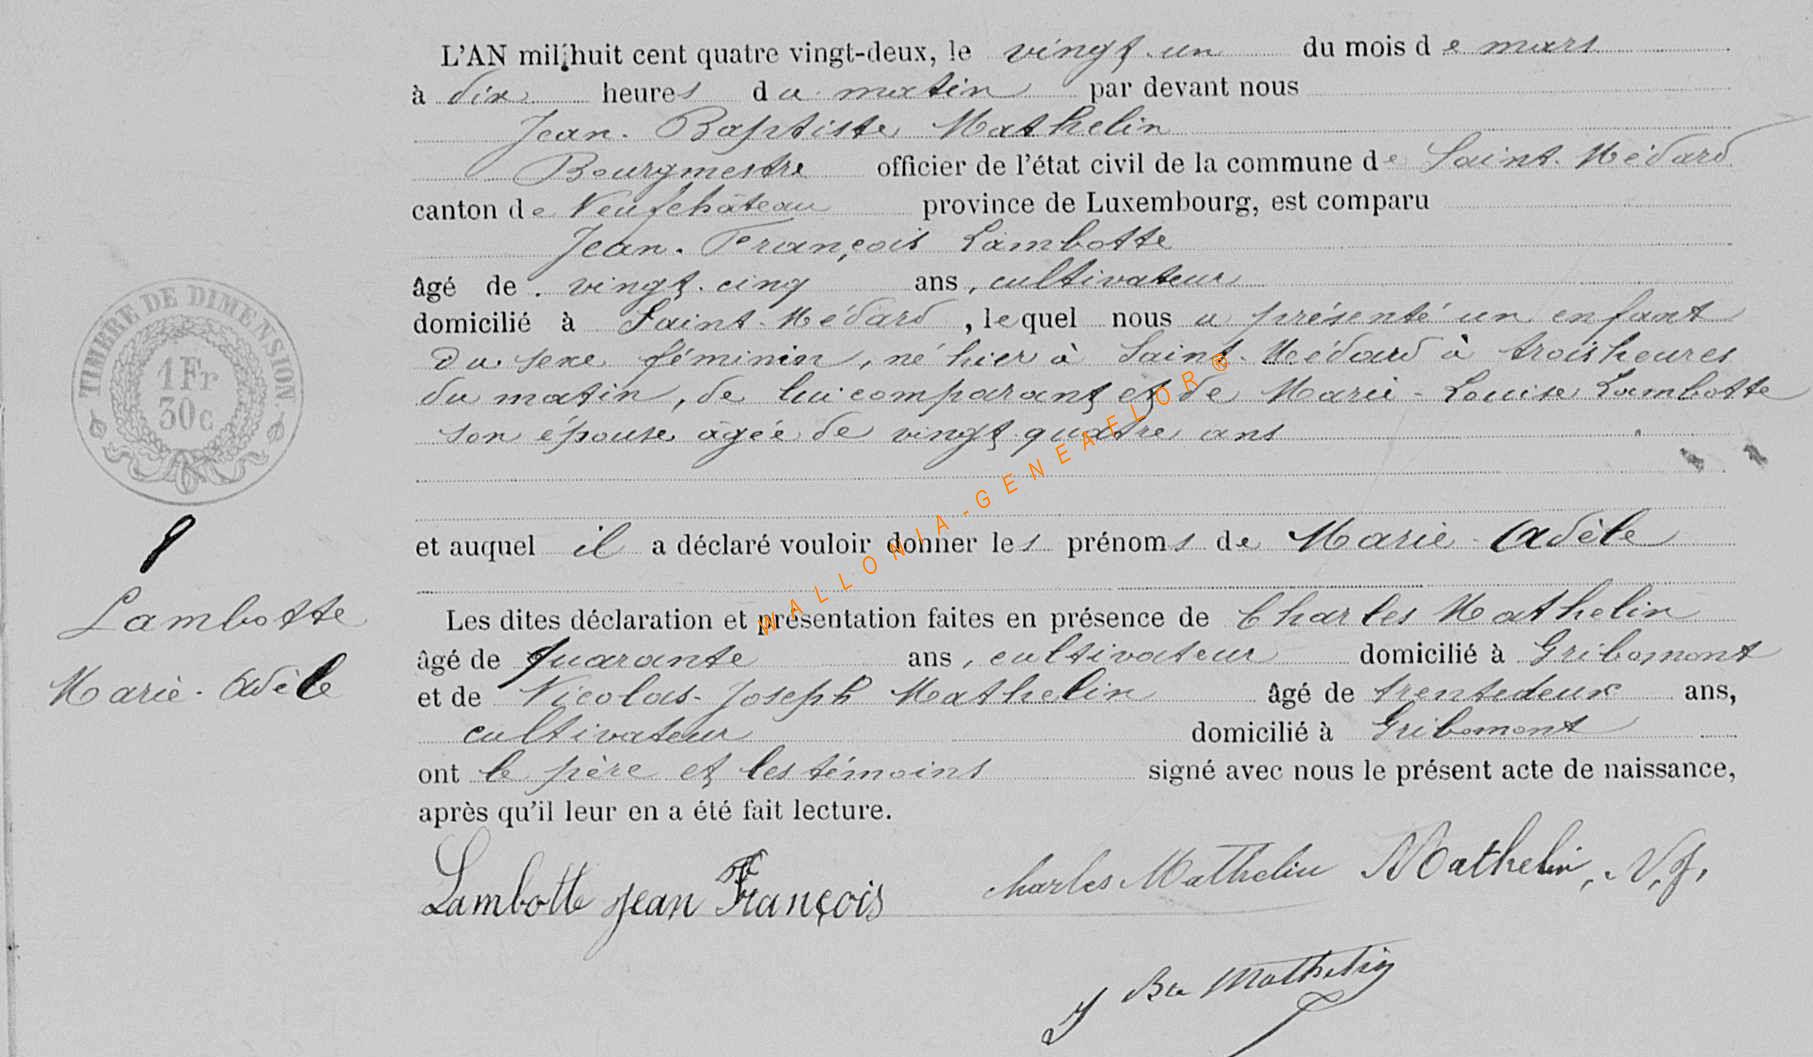 L'AN mil huit cent quatre vingt-deux, le vingt-un du mois de mars
à dix heures du matin par devant nous
Jean-Baptiste Mathelin
Bourgmestre officier de l'état civil de la commune de Saint-Médard
canton de Neufchâteau province de Luxembourg, est comparu
Jean-François Lambotte
âgé de vingt-cinq ans, cultivateur
domicilié à Saint-Médard, lequel nous a présenté un enfant
du sexe féminin, né hier à Saint-Médard à trois heures
du matin, de lui comparant et de Marie-Louise Lambotte
son épouse âgée de vingt-quatre ans
et auquel il a déclaré vouloir donner les prénoms de Marie-Adèle
Les dites déclaration et présentation faites en présence de Charles Mathelin
âgé de quarante ans, cultivateur domicilié à Gribomont
et de Nicolas-Joseph Mathelin âgé de trente deux ans,
cultivateur domicilié à Gribomont
ont le père et les témoins signé avec nous le présent acte de naissance,
après qu'il leur en a été fait lecture.
Lambotte Jean François Charles Mathelin Mathelin, N. J.
J Bte Mathelin
TIMBRE DE DIMENSION.
1 Fr
30c
8
Lambotte
Marie-Adèle
WALLONIA-GENEAFLOR®